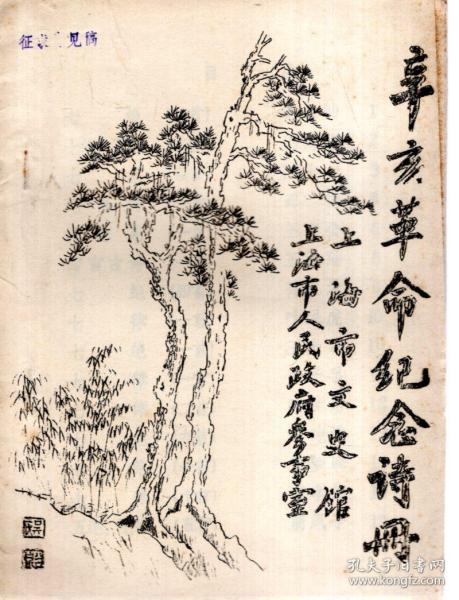 辛亥革命纪念诗册
上海市文史馆
上海市人民政府参事室
征求意见稿
孔夫子旧书网
www.kongfz.com